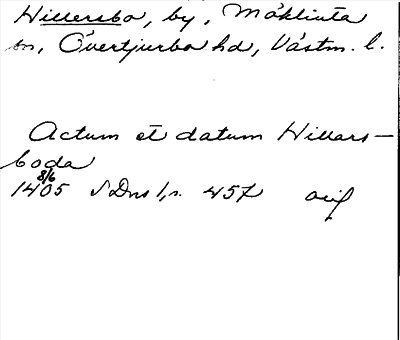 Hillersbo, by, Möklinta
sn, Övertjurbo hd, Västm. l.
Actum et datum Hillars-
boda
8/6
1405 SDns 1, s. 457 orig